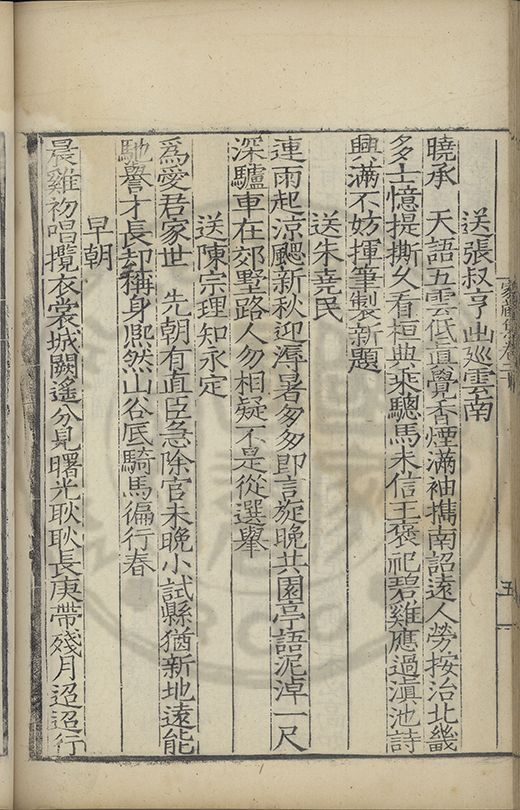 送張叔亨出巡雲南
曉承　天語五雲低直覺香煙滿袖攜南詔遠人勞按治北畿
多士憶提撕久看桓典乘驄馬未信王褒祀碧雞應過滇池詩
興滿不妨揮筆製新題
送朱堯民
連雨起涼颸新秋迎溽暑匆匆即言旋晚共園亭語泥淖一尺
深驢車在郊墅路人勿相疑不是從選舉
送陳宗理知永定
爲愛君家世　先朝有直臣急除官未晚小試縣猶新地遠能
馳譽才長却稱身熙然山谷底騎馬徧行春
早朝
晨雞初唱攬衣裳城闕遙分見曙光耿耿長庚帶殘月迢迢行
家藏集卷二
五